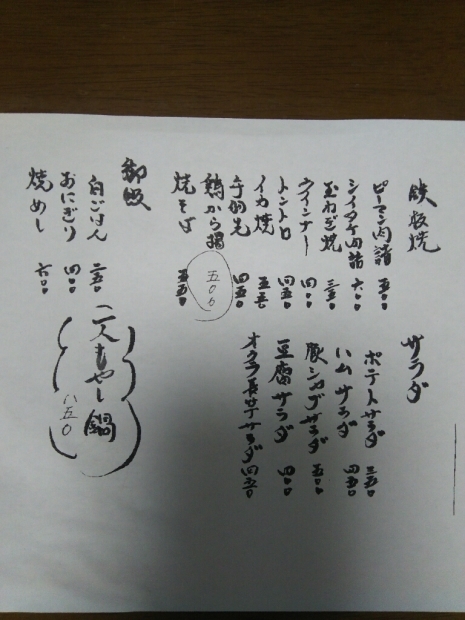 鉄板焼
ピーマン肉詰 五〇〇
シイタケ肉詰 六〇〇
玉ねぎ焼 三五〇
ウインナー 四〇〇
トントロ 四五〇
イカ焼 五五〇
手羽先 四五〇
鶏から揚 五〇〇
焼そば 五五〇
サラダ
ポテトサラダ 三五〇
ハムサラダ 四五〇
豚シャブサラダ 五〇〇
豆腐サラダ 四〇〇
オクラ長芋サラダ 四五〇
御飯
白ごはん 二五〇
おにぎり 四〇〇
焼めし 六〇〇
二人もやし鍋
八五〇